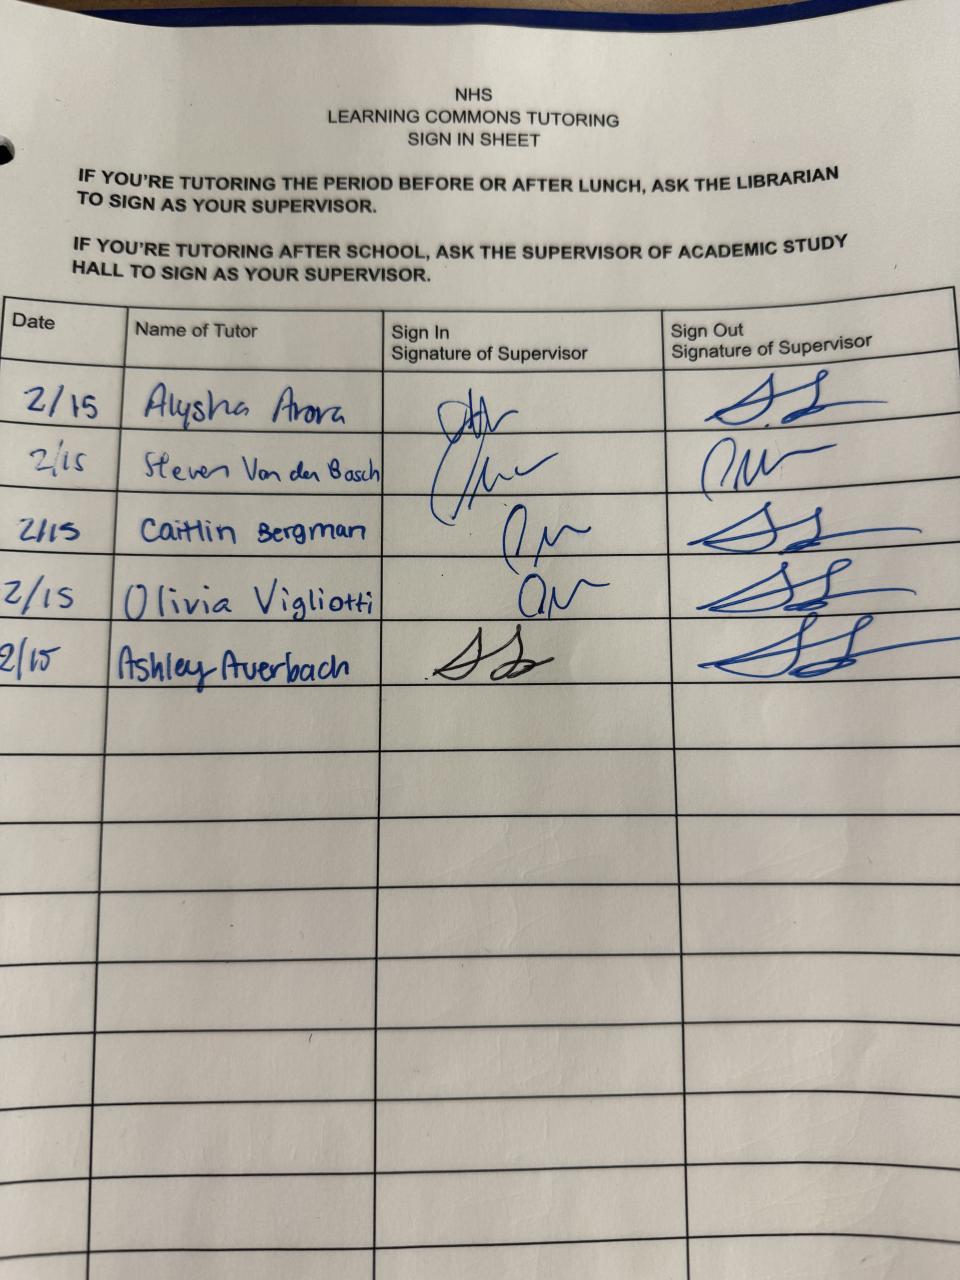 NHS
LEARNING COMMONS TUTORING
SIGN IN SHEET
IF YOU'RE TUTORING THE PERIOD BEFORE OR AFTER LUNCH, ASK THE LIBRARIAN
TO SIGN AS YOUR SUPERVISOR.
IF YOU'RE TUTORING AFTER SCHOOL, ASK THE SUPERVISOR OF ACADEMIC STUDY
HALL TO SIGN AS YOUR SUPERVISOR.
Date Name of Tutor Sign In Sign Out
Signature of Supervisor Signature of Supervisor
2/15 Alysha Arora
2/15 Steven Von den Bosch
2/15 Caitlin Bergman
2/15 Olivia Vigliotti
2/15 Ashley Averbach